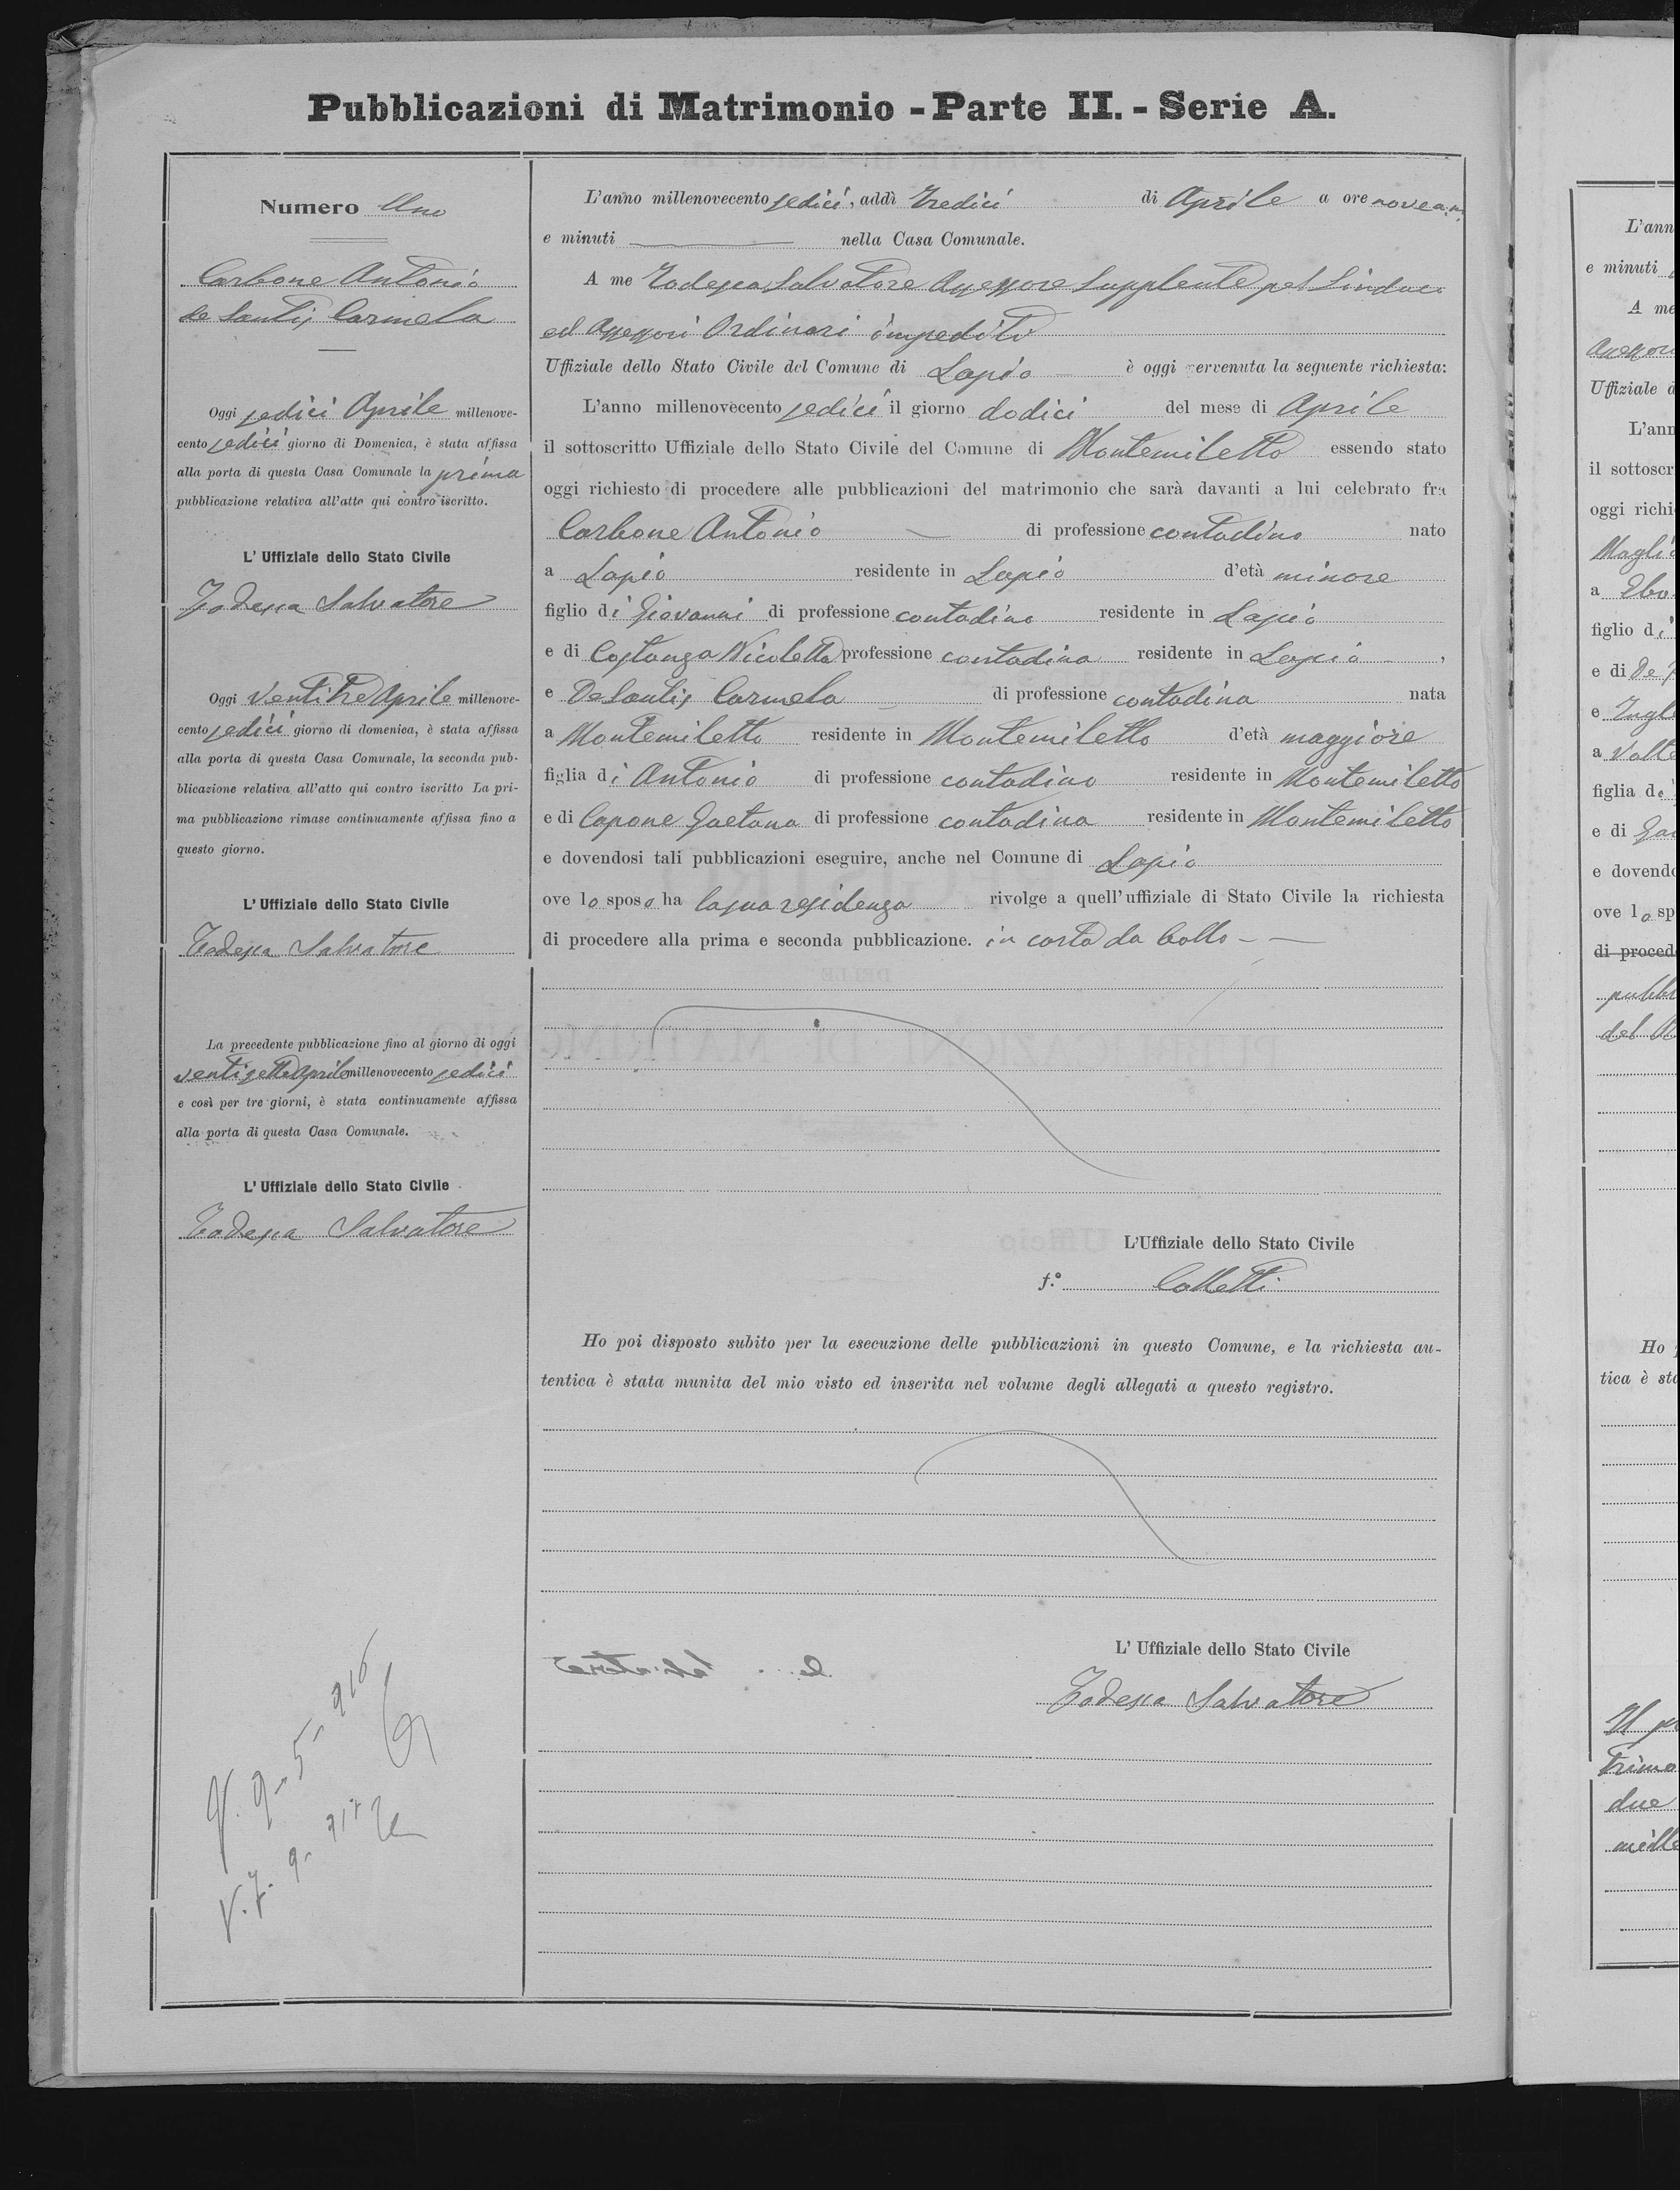 Pubblicazioni di Matrimonio - Parte II. - Serie A.
Numero Uno
Carbone Antonio
De Santis Carmela
Oggi sedici Aprile millenove-
cento sedici giorno di Domenica, è stata affissa
alla porta di questa Casa Comunale la prima
pubblicazione relativa all'atto qui contro iscritto.
L'Uffiziale dello Stato Civile
Todesca Salvatore
Oggi Ventitre Aprile millenove-
cento sedici giorno di domenica, è stata affissa
alla porta di questa Casa Comunale, la seconda pub-
blicazione relativa all'atto qui contro iscritto La pri-
ma pubblicazione rimase continuamente affissa fino a
questo giorno.
L'Uffiziale dello Stato Civile
Todesca Salvatore
La precedente pubblicazione fino al giorno di oggi
ventisette Aprile millenovecento sedici
e così per tre giorni, è stata continuamente affissa
alla porta di questa Casa Comunale.
L'Uffiziale dello Stato Civile
Todesca Salvatore
V. 9-5-916
V. 7. 9- 917
L'anno millenovecento sedici, addì Tredici di Aprile a ore nove a.m.
e minuti nella Casa Comunale.
A me Todesca Salvatore Assessore Supplente pel Sindaco
ed Assessori Ordinari impediti
Uffiziale dello Stato Civile del Comune di Lapio è oggi pervenuta la seguente richiesta:
L'anno millenovecento sedici il giorno dodici del mese di Aprile
il sottoscritto Uffiziale dello Stato Civile del Comune di Montemiletto essendo stato
oggi richiesto di procedere alle pubblicazioni del matrimonio che sarà davanti a lui celebrato fra
Carbone Antonio di professione contadino nato
a Lapio residente in Lapio d'età minore
figlio di Giovanni di professione contadino residente in Lapio
e di Costanza Nicoletta professione contadina residente in Lapio,
e De Santis Carmela di professione contadina nata
a Montemiletto residente in Montemiletto d'età maggiore
figlia di Antonio di professione contadino residente in Montemiletto
e di Capone Gaetana di professione contadina residente in Montemiletto
e dovendosi tali pubblicazioni eseguire, anche nel Comune di Lapio
ove lo sposo ha la sua residenza rivolge a quell'uffiziale di Stato Civile la richiesta
di procedere alla prima e seconda pubblicazione. in carta da bollo
L'Uffiziale dello Stato Civile
f.° Colletti
Ho poi disposto subito per la esecuzione delle pubblicazioni in questo Comune, e la richiesta au-
tentica è stata munita del mio visto ed inserita nel volume degli allegati a questo registro.
L'Uffiziale dello Stato Civile
Todesca Salvatore
L'ann
e minuti
A me
Uffiziale d
L'ann
il sottoscr
oggi richi
a Ebo
figlio di
e di De
e Ingl
a Volt
figlia de
e di
e dovend
ove la sp
di proced
pubbl
del
Ho
tica è sta
Il
Trimo
due
mille